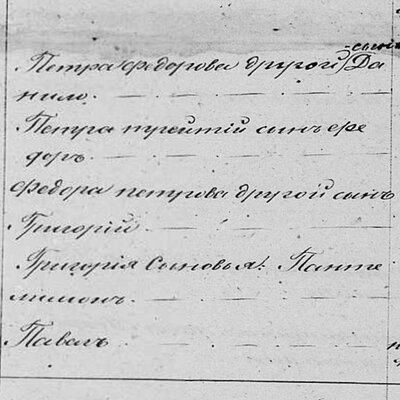 сынъ
Петра федорова другой Да
нило.
Петра треттій сынъ фе
доръ.
федора петрова другой сынъ
Григорій
Григорія Сыновья: Панте
лимонъ.
Павелъ